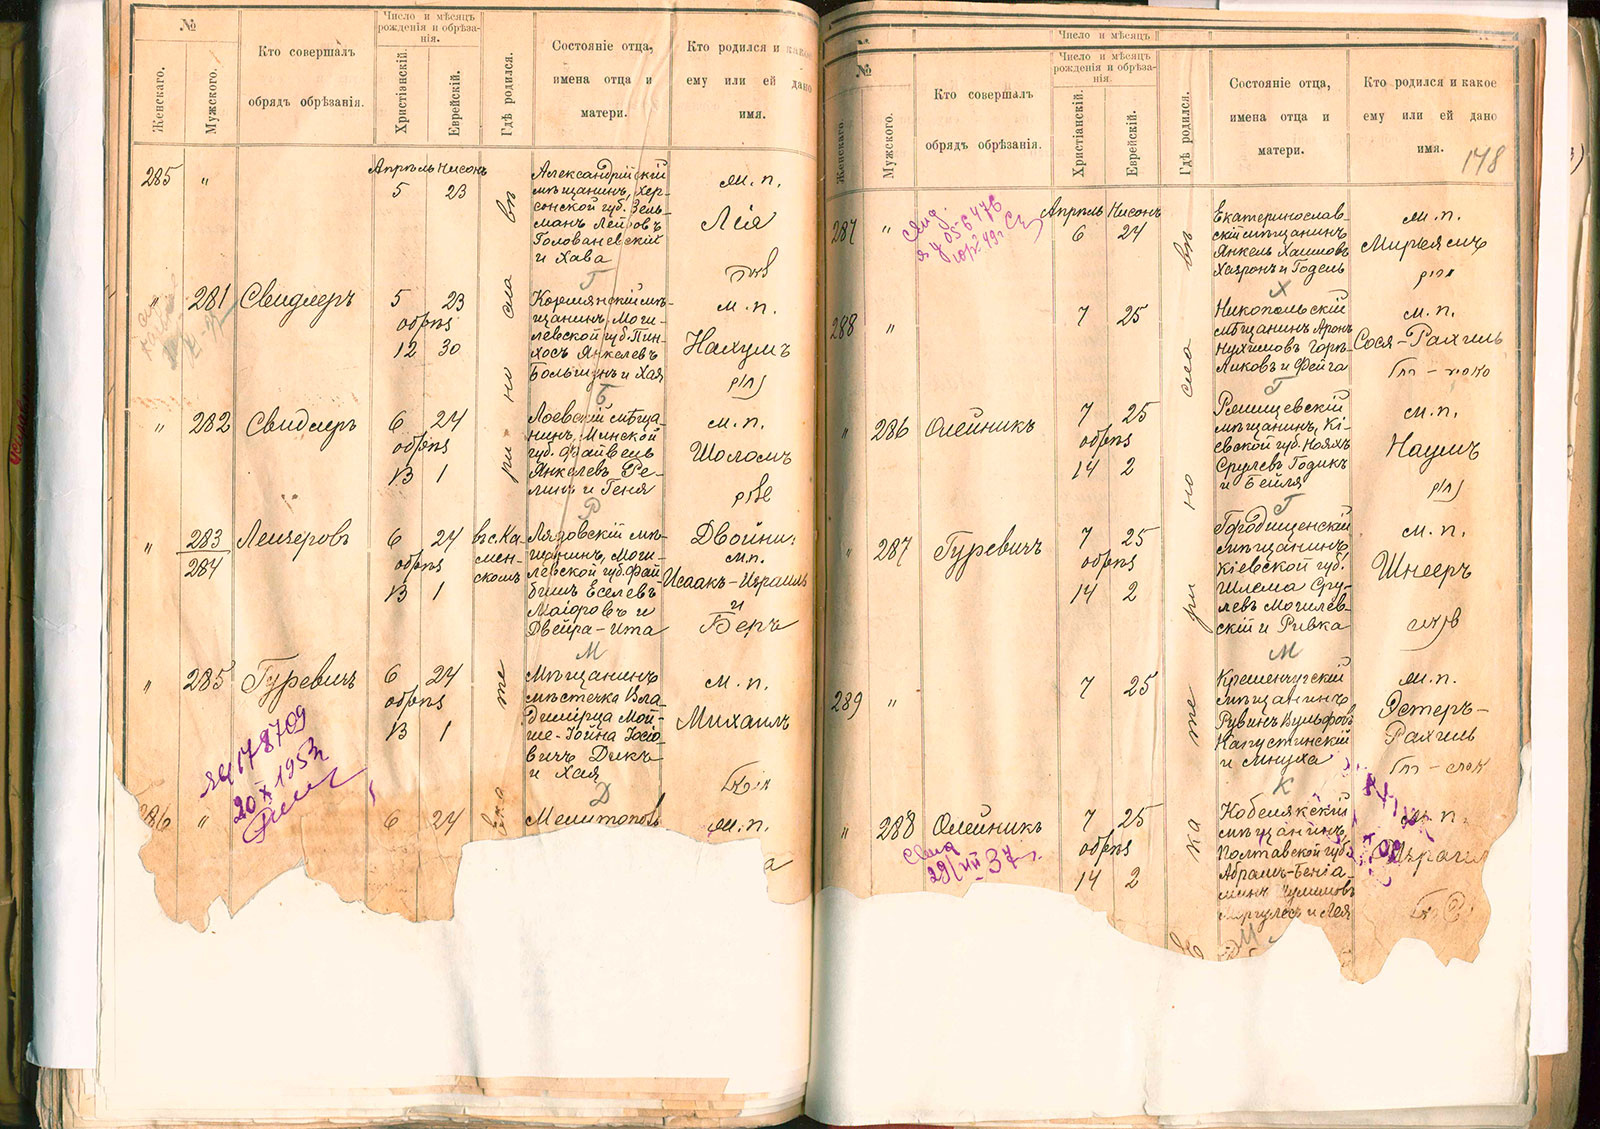 №
Женскаго.
Мужского.
Кто совершалъ
обрядъ обрѣзанія.
Число и мѣсяцъ
рожденія и обрѣза-
нія.
Христіанскій.
Еврейскій.
Гдѣ родился.
Состояніе отца,
имена отца и
матери.
Кто родился и какое
ему или ей дано
имя.
285
"
Апрѣль Нисонъ
5 23
Александрійскій
мѣщанинъ, Хер-
сонской губ. Зель-
манъ Лейбовъ
Голованевскій
и Хава
м. п.
Лея
Г
"
281
Свидлеръ
5 23
обрѣз
12 30
мѣ-
щанинъ, Моги-
левской губ. Пин-
хосъ Янкелевъ
Большунъ и Хая
м. п.
Нахумъ
Б
"
282
Свидлеръ
6 24
обрѣз
13 1
Лоевскій мѣща-
нинъ, Минской
губ. Файвель
Янкелевъ Ре-
линъ и Геня
м. п.
Шоломъ
Р
"
283
284
Лейзеровъ
6 24
обрѣз
13 1
въ с. Ка-
мен-
скомъ
Лядовскій мѣ-
щанинъ, Моги-
левской губ. Фай
бишъ Еселевъ
Маіоровъ и
Двейра-Ита
Двойни:
м. п.
Исаакъ-Израиль
и
Беръ
М
"
285
Гуревичъ
6 24
обрѣз
13 1
Мѣщанинъ
мѣстечка Вла-
димірца Мой-
ше-Іойна Іосіо-
вичъ Дикъ
и Хая
м. п.
Михаилъ
Д
ЯЧ 178709
20 X 1953
286
"
6 24
Мелитопов
м. п.
а
въ
сла
но
ри
те
ека
№
Женскаго.
Мужского.
Кто совершалъ
обрядъ обрѣзанія.
Число и мѣсяцъ
Число и мѣсяцъ
рожденія и обрѣза-
нія.
Христіанскій.
Еврейскій.
Гдѣ родился.
Состояніе отца,
имена отца и
матери.
Кто родился и какое
ему или ей дано
имя.
178
287
"
Апрѣль Нисонъ
6 24
Екатеринослав-
скій мѣщанинъ
Янкель Хаимовъ
Хазронъ и Годель
м. п.
Мирьямъ
מרים
Х
288
"
7 25
Никопольскій
мѣщанинъ Аронъ
Нухимовъ Горѣ-
ликовъ и Фейга
м. п.
Сося-Рахиль
Г
"
286
Олейникъ
7 25
обрѣз
14 2
мѣщанинъ, Кі-
евской губ. Нояхъ
Срулевъ Годикъ
и Бейля
м. п.
Наумъ
Г
"
287
Гуревичъ
7 25
обрѣз
14 2
Городищенскій
мѣщанинъ
Кіевской губ.
Шлема Сру-
левъ Могилев-
скій и Ривка
м. п.
Шнееръ
М
289
"
7 25
Кременчугскій
мѣщанинъ
Рувинъ Вульфовъ
Капустинскій
и Мнуха
м. п.
Эстеръ-
Рахиль
К
"
288
Олейникъ
7 25
обрѣз
14 2
Кобелякскій
мѣщанинъ,
Полтавской губ.
Абрамъ-Бенiа-
минъ
Маргулесъ и Лея
м. п.
М
29/VIII-37 г.
въ
сла
но
ри
те
ка